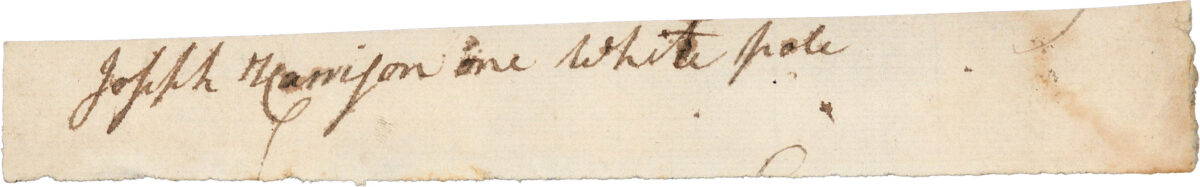 Joseph Harrison one White pole